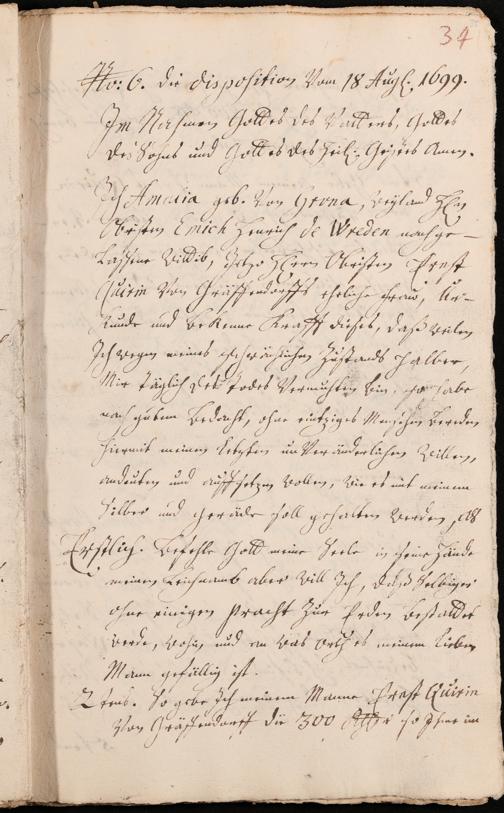 34
No: 6. die disposition Vom 18 Aug. 1699.
Im Nahmen Gottes des Vatters, Gottes
des Sohns und Gottes des Heil. Geistes Amen.
Ich Amalia geb. Von Grona, weyland
Obristen Emich Henrich de Wreden nachge-
laßene Wittib, Obristen Ernst
Quirin Von Gräffendorffs eheliche Frau, Uhr-
kunde und bekenne Krafft dieses, daß weilen
Ich wegen meines Zustands halber,
Mir täglich des Todes Vermuhten bin, so habe
nach gutem bedacht, ohne eintziges Menschen bereden
hiermit meinen letzten unVeränderlichen Willen,
andeuten und auffsetzen wollen, wie es mit meinem
Silber und geräde soll gehalten werden, als
Erstlich. befehle Gott meine Seele in seine Hände
meinen Leichnamb aber will Ich, daß selbiger
ohne einigen Pracht zur Erden bestattet
werde, wohin und an was orth es meinem lieben
Mann gefällig ist.
2tens. So gebe Ich meinem Manne Ernst Quirin
Von Gräffendorff die 300 so Ihme im